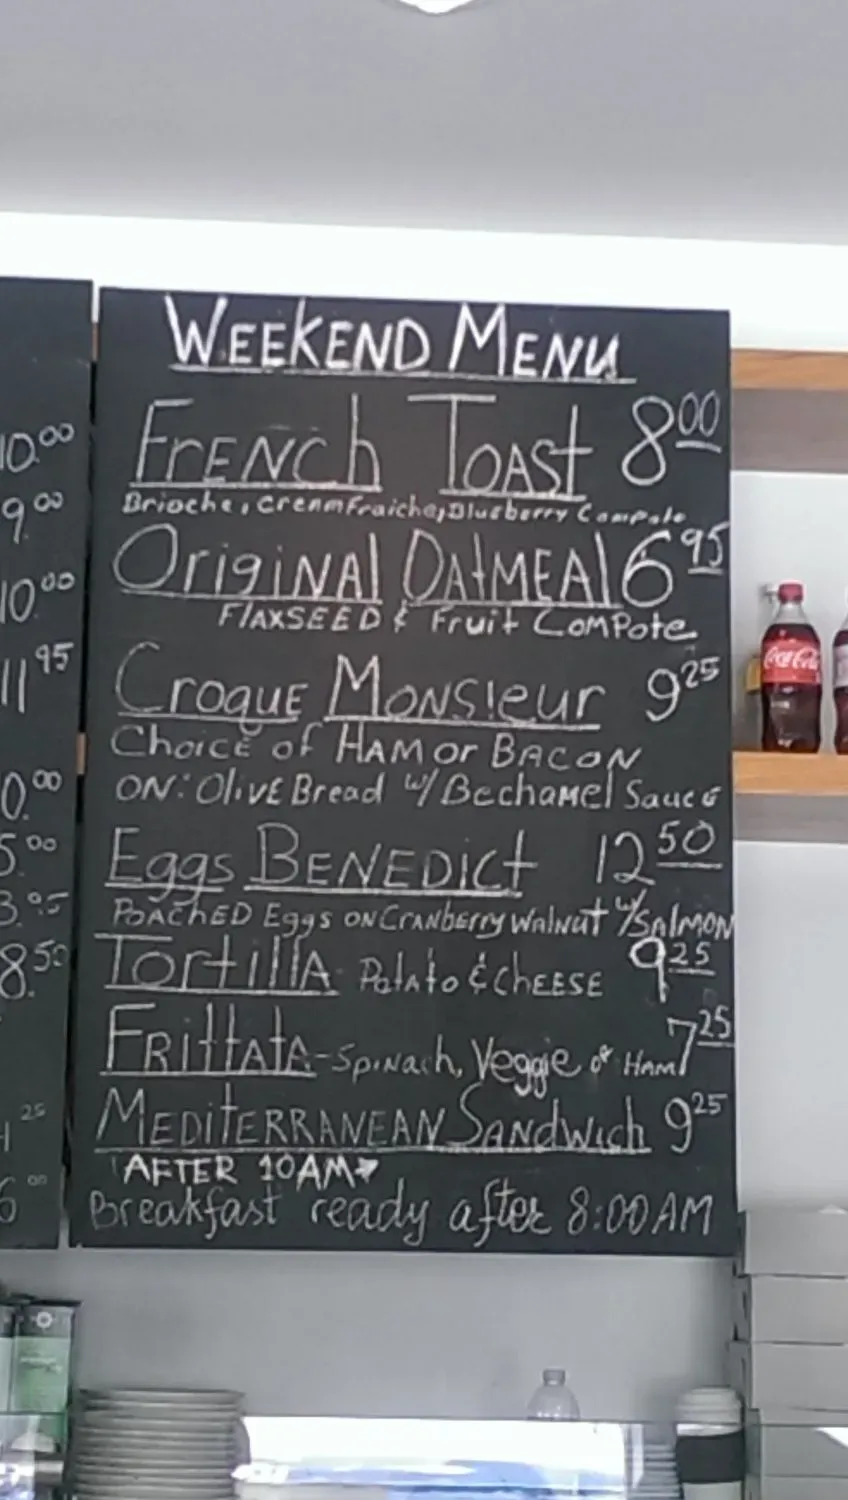 WEEKEND MENU
FRENCh TOASt 8.00
Brioche, Cream Fraiche, Blueberry Compote
OriginAl OAtMEAl 6.95
FlAxSEED & Fruit ComPote
CroquE Monsieur 9.25
ChoicE of HAM or BACON
ON: OlivE Bread w/ BechaMel Sauce
Eggs BENEDIct 12.50
POAChED Eggs ON CRANberry WAlNut w/ SAlMON
TortillA Potato & ChEESE 9.25
FRittAtA - SpiNach, Veggie or HAM 7.25
MEDitERRANEAN SANdwich 9.25
AFTER 10AM
Breakfast ready after 8:00AM
10.00
9.00
10.00
11.95
0.00
5.00
3.95
8.50
25
6.00
Coca-Cola